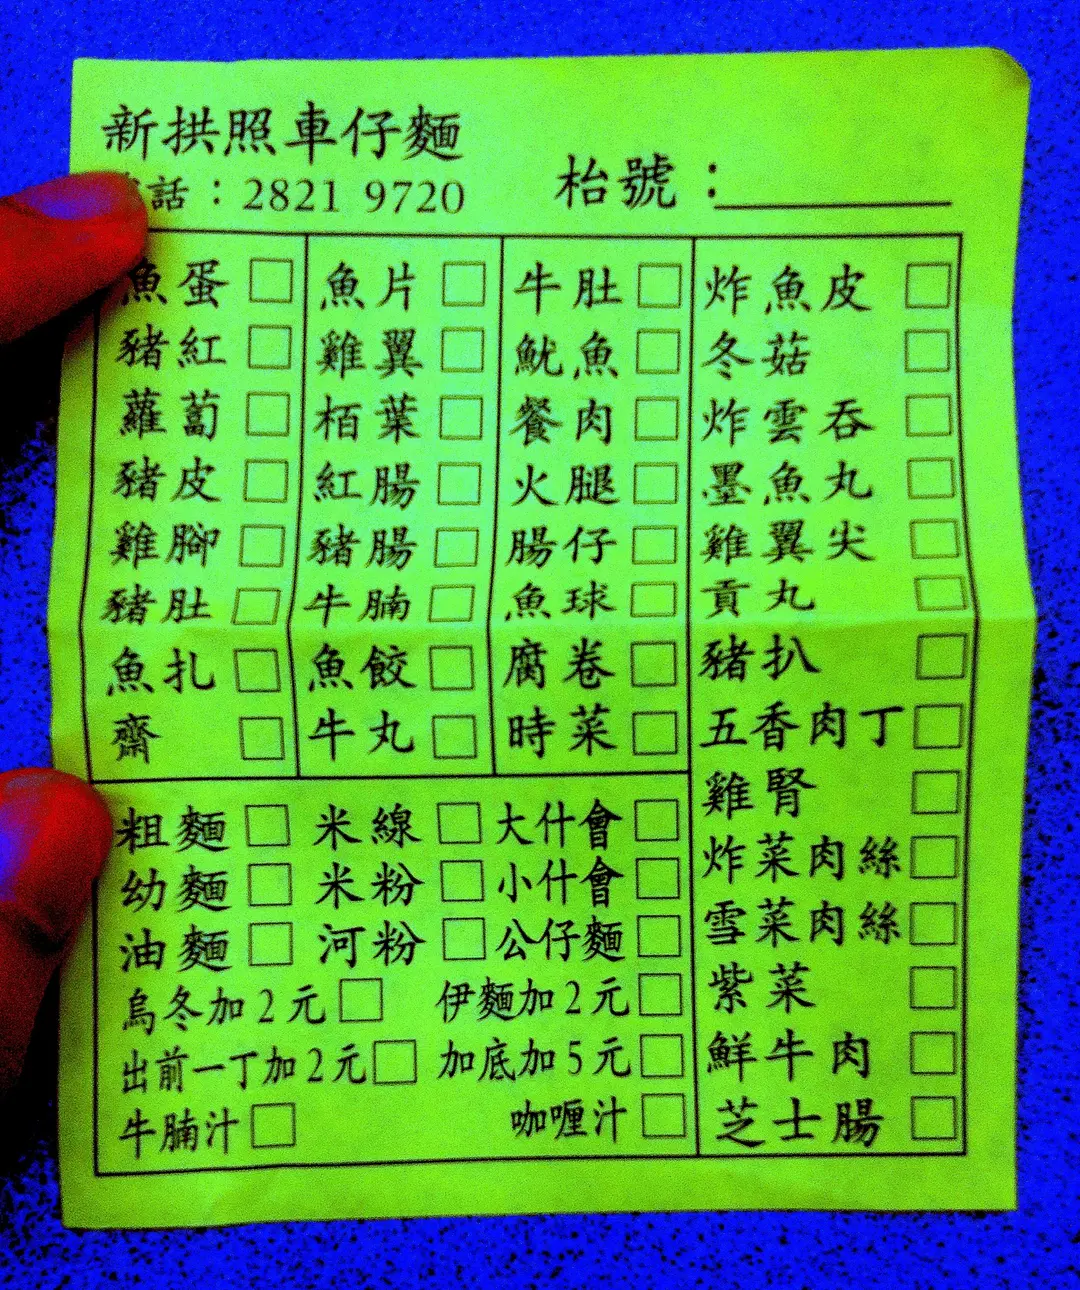 新拱照車仔麵
話：2821 9720
枱號：
魚蛋 □ 魚片 □ 牛肚 □ 炸魚皮 □
豬紅 □ 雞翼 □ 魷魚 □ 冬菇 □
蘿蔔 □ 栢葉 □ 餐肉 □ 炸雲吞 □
豬皮 □ 紅腸 □ 火腿 □ 墨魚丸 □
雞腳 □ 豬腸 □ 腸仔 □ 雞翼尖 □
豬肚 □ 牛腩 □ 魚球 □ 貢丸 □
魚扎 □ 魚餃 □ 腐卷 □ 豬扒 □
齋 □ 牛丸 □ 時菜 □ 五香肉丁 □
雞腎 □
粗麵 □ 米線 □ 大什會 □ 炸菜肉絲 □
幼麵 □ 米粉 □ 小什會 □ 雪菜肉絲 □
油麵 □ 河粉 □ 公仔麵 □
烏冬加2元 □ 伊麵加2元 □ 紫菜 □
出前一丁加2元 □ 加底加5元 □ 鮮牛肉 □
牛腩汁 □ 咖喱汁 □ 芝士腸 □